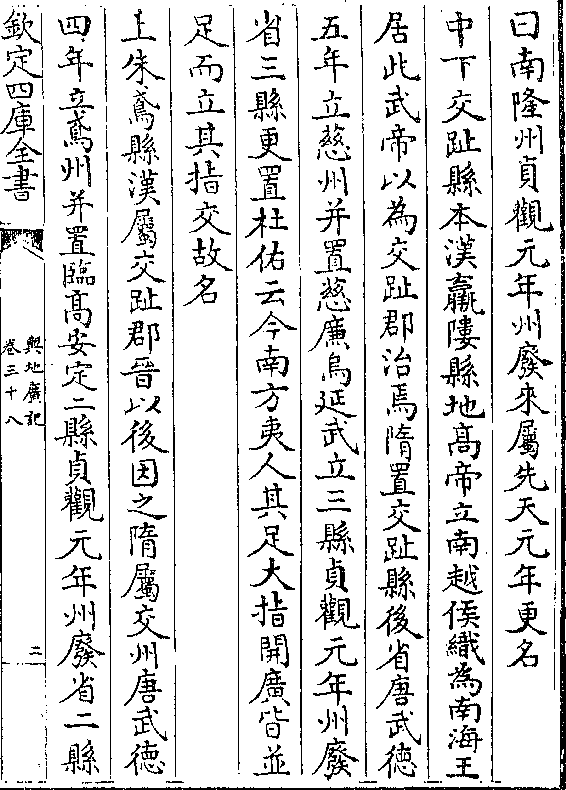 曰南隆州貞觀元年州廢來屬先天元年更名
中下交趾縣本漢羸𨻻縣地高帝立南越侯織為南海王
居此武帝以為交趾郡治焉隋置交趾縣後省唐武德
五年立慈州并置慈廉烏延武立三縣貞觀元年州廢
省三縣更置杜佑云今南方夷人其足大指開廣皆並
足而立其指交故名
上朱鳶縣漢屬交趾郡晉以後因之隋屬交州唐武德
四年立鳶州并置臨高安定二縣貞觀元年州廢省二縣
欽定四庫全書
輿地廣記
卷三十八
二